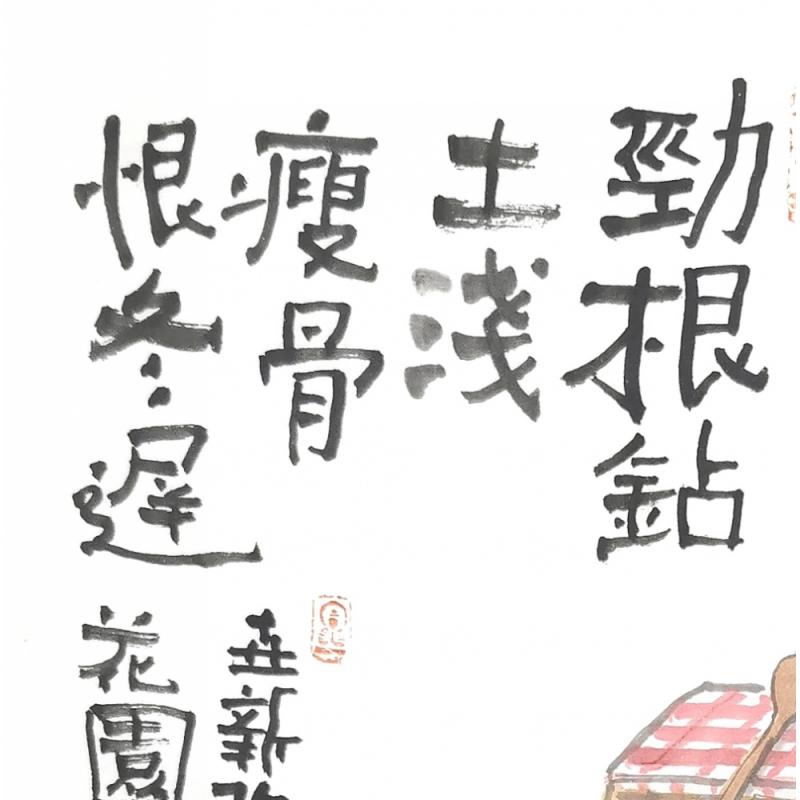 勁根鉆
土淺
瘦骨
恨冬遲
新
花園